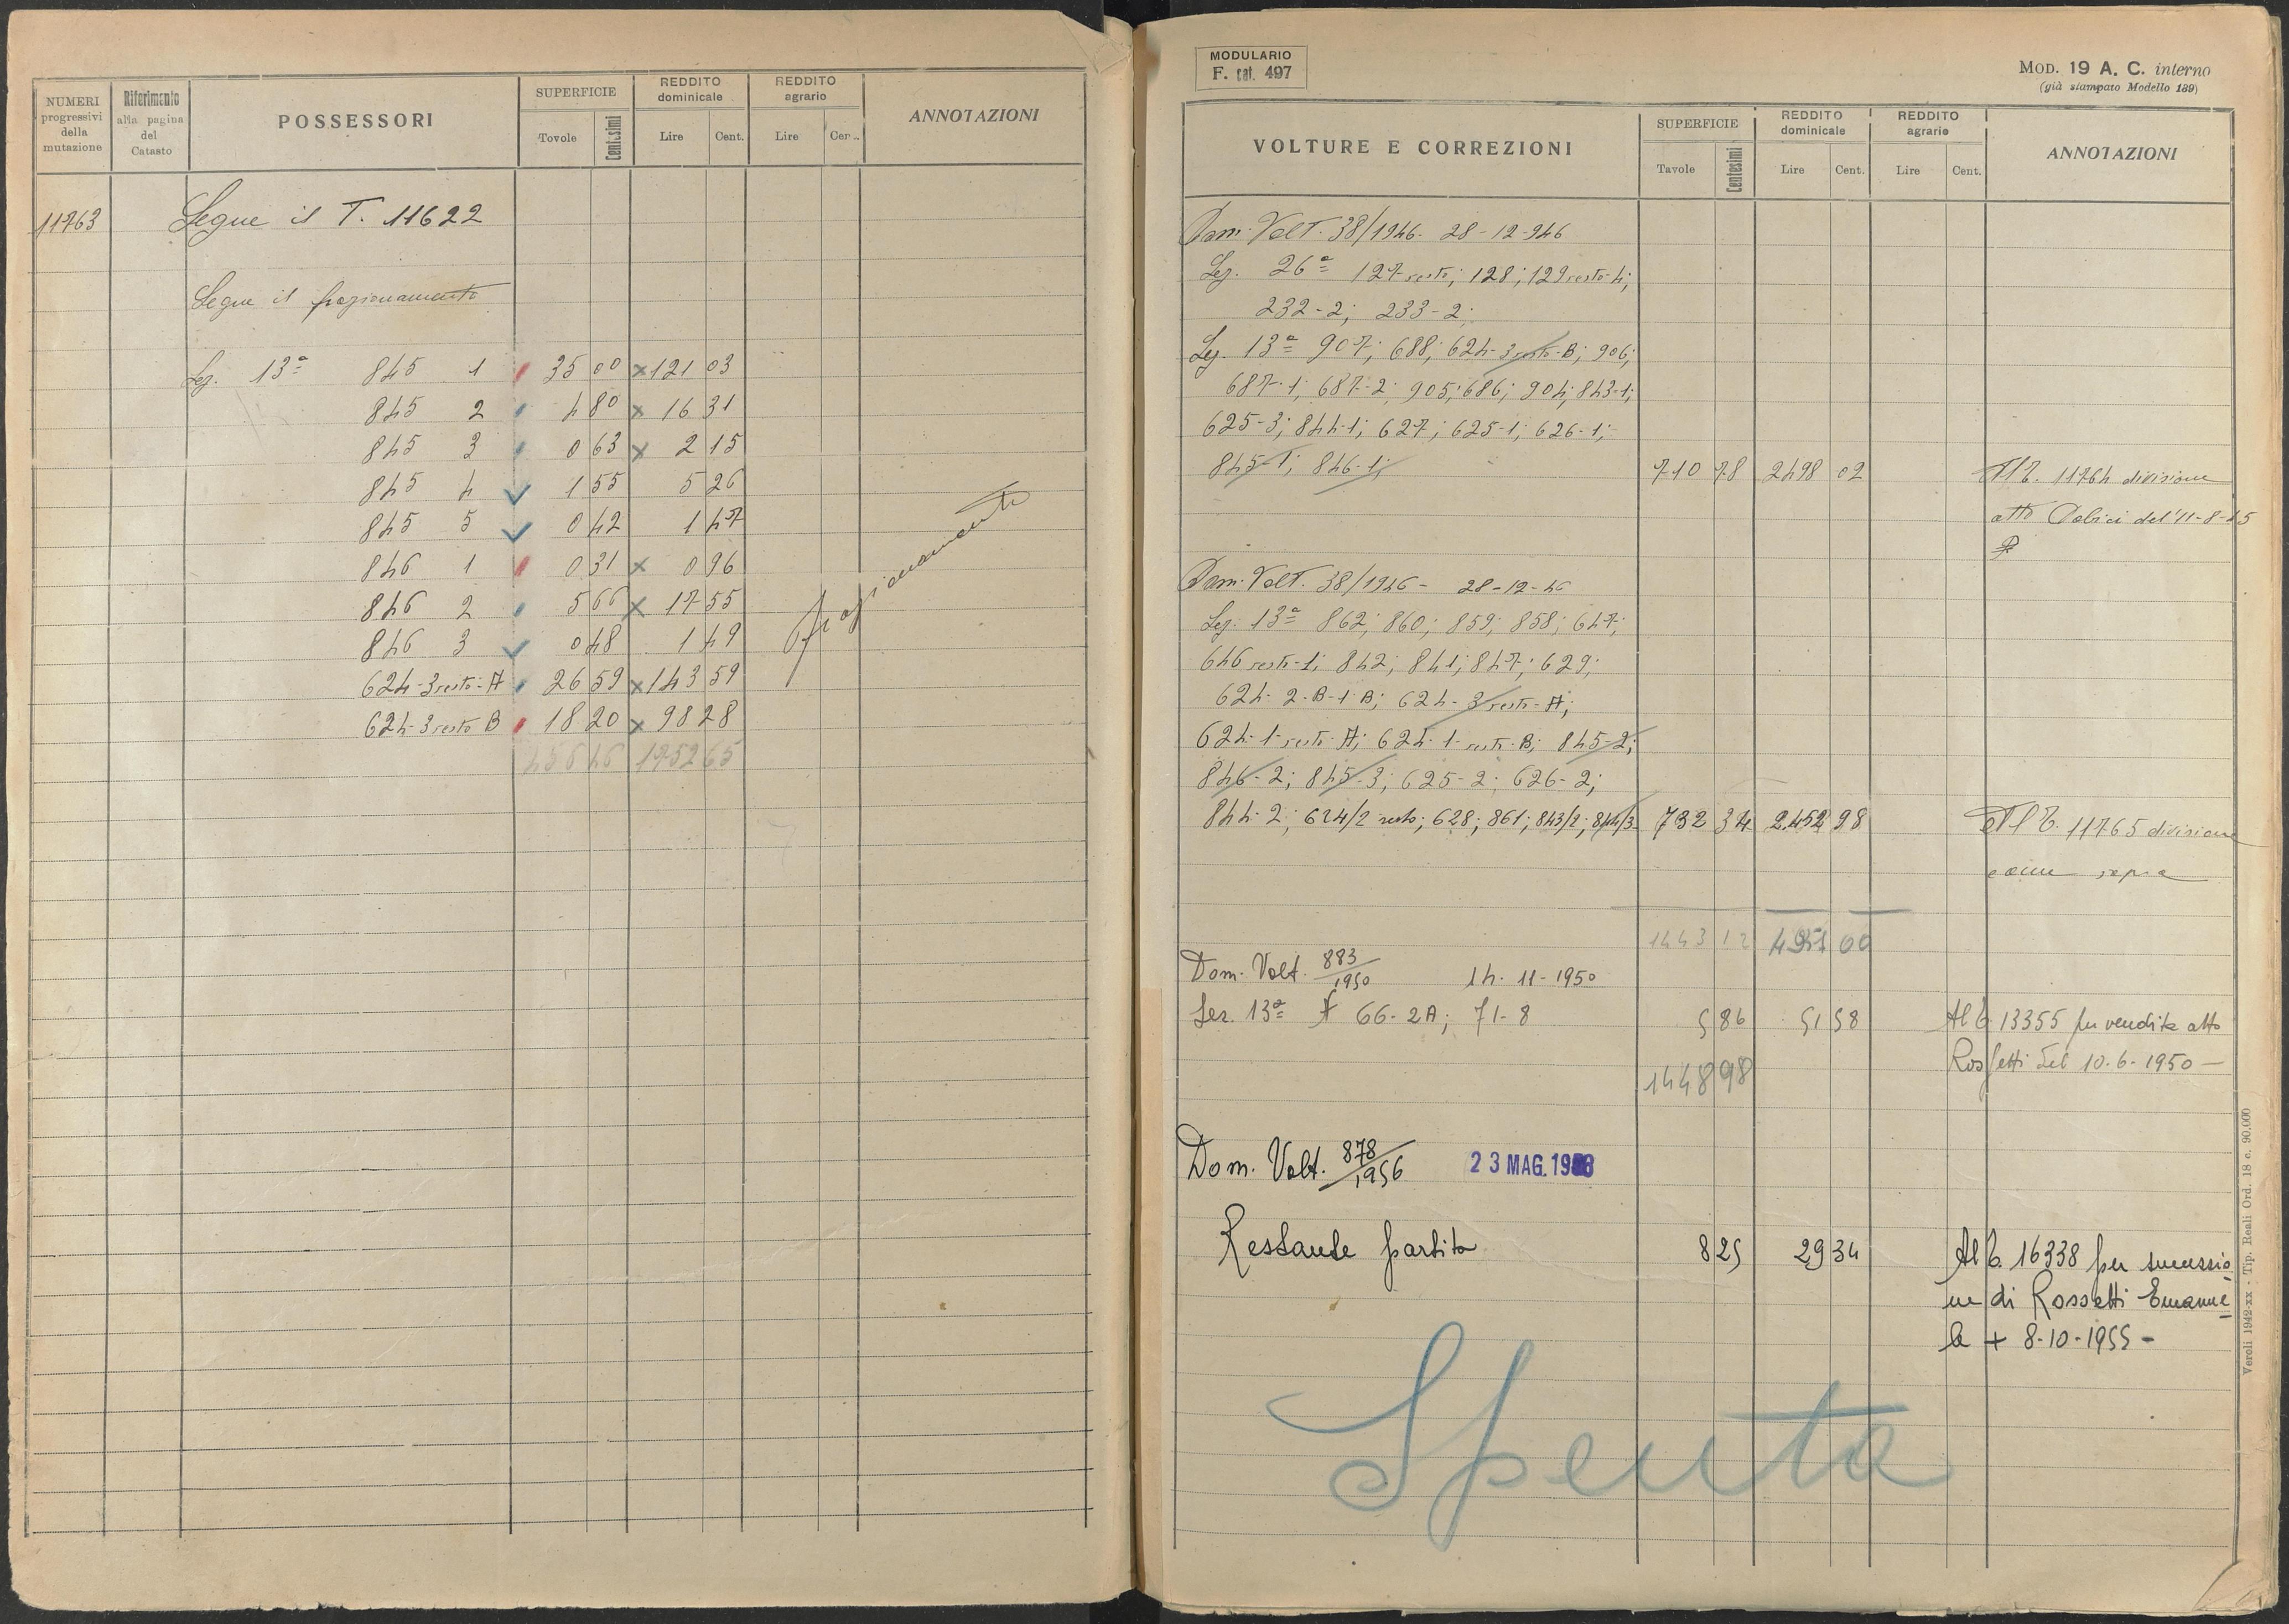 NUMERI progressivi della mutazione
Riferimento alla pagina del Catasto
POSSESSORI
SUPERFICIE
Tovole Centesimi
REDDITO dominicale
Lire Cent.
REDDITO agrario
Lire Cen..
ANNOTAZIONI
11763 Segue il T. 11622
Segue il frazionamento
Sez. 13ª 845 1 35 00 × 121 03
845 2 4 80 × 16 31
845 3 0 63 × 2 15
845 4 1 55 5 26
845 5 0 42 1 47
846 1 0 31 × 0 96
846 2 5 66 × 17 55
846 3 0 48 1 49
624-3 resto-A 26 59 × 143 59
624-3 resto B 18 20 × 98 28
frazionamento
MODULARIO
F. cat. 497
MOD. 19 A. C. interno
(già stampato Modello 189)
VOLTURE E CORREZIONI
SUPERFICIE
Tavole Centesimi
REDDITO dominicale
Lire Cent.
REDDITO agrario
Lire Cent.
ANNOTAZIONI
Dom. Volt. 38/1946. 28-12-946
Sez. 26ª 127 resto; 128; 129 resto-4;
232-2; 233-2;
Sez. 13ª 907; 688; 624-3 resto-B; 906;
687-1; 687-2; 905; 686; 904; 843-1;
625-3; 844-1; 627; 625-1; 626-1;
845-1; 846-1; 710 78 2498 02 Al T. 11764 divisione
atto del 11-8-45
Dom. Volt. 38/1946 - 28-12-46
Sez. 13ª 862; 860; 859; 858; 647;
646 resto-1; 842; 841; 847; 629;
624-2-B-1-B; 624-3 resto-A;
624-1-resto-A; 624-1-resto-B; 845-2;
846-2; 845-3; 625-2; 626-2;
844-2; 624/2 resto; 628; 861; 843/2; 844/3 732 34 2452 98 Al T. 11765 divisione
come sopra
1443 12 4951 00
Dom. Volt. 883/1950 14-11-1950
Sez. 13ª 66-2A; 71-8 5 86 51 58 Al T. 13355 per vendita atto
Rossetti del 10-6-1950 -
1448 98
Dom. Volt. 878/1956 23 MAG. 19
Restante partita 8 25 29 34 Al T. 16338 per successio
ne di Rossetti Emanue
le + 8-10-1955 -
Spenta
Veroli 1942-xx - Tip. Reali Ord. 18 c. 90.000